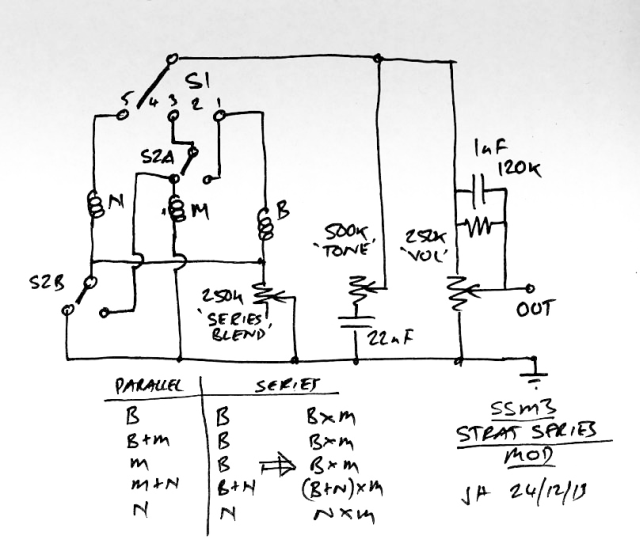 S1
5 4 3 2 1
S2A
1nF
120K
N
M
B
500K
'TONE'
250K
'VOL'
S2B
250K
'SERIES
BLEND'
22nF
OUT
PARALLEL SERIES
B B B×M
B+M B B×M
M B ⇒ B×M
M+N B+N (B+N)×M
N N N×M
SSM3
STRAT SERIES
MOD
JH 24/12/13